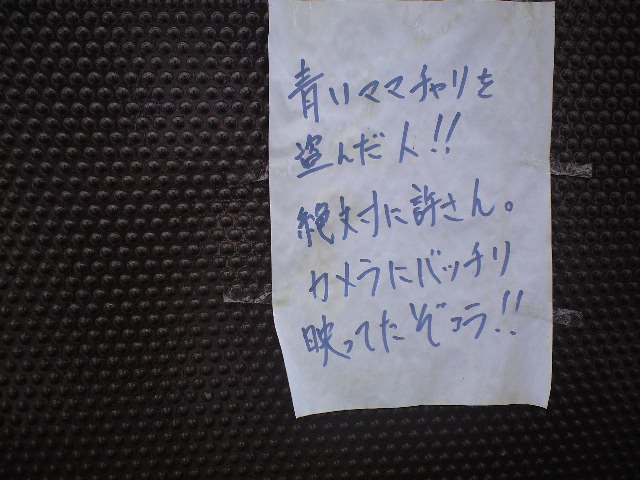 青いママチャリを
盗んだ人!!
絶対に許さん。
カメラにバッチリ
映ってたぞコラ!!